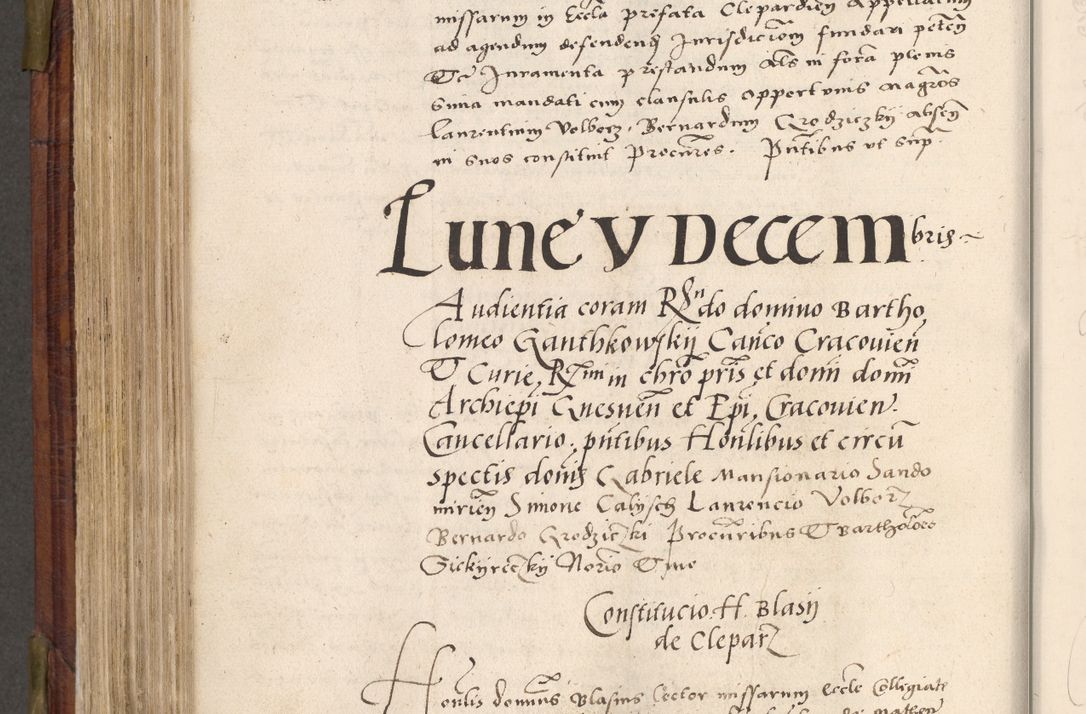 missarum in Eccla prefata Clepardien Appellatum
ad agendum defendendq Jurisdictiom fundari peten
Et Juramenta prestandum Als in fora plenis
Suma mandati cum clausulis opportunis magros
Laurentium Volborz, Bernardum Grodziczkij absen
in suos constituit Procures. Pntibus ut sup.
Lune V Decembris
Audientia coram Rndo domino Bartho
lomeo Ganthkowskij Canco Cracovien
Et Curie, Rmi in chro pris et domi domi
Archiepi Gnesnen et Epi, Cracovien.
Cancellario, pntibus Honlibus et circu
spectis donis Gabriele Mansionario Sando
mirien Simone Calijsch Laurencio Volborz
Bernardo Grodziczki Procuribus Et Bartholoeo
Gickijreczkij Norio Et me
Constitucio H. Blasij
de Cleparz
Honlis domnus Blasius Lector missarum Eccle Collegiate